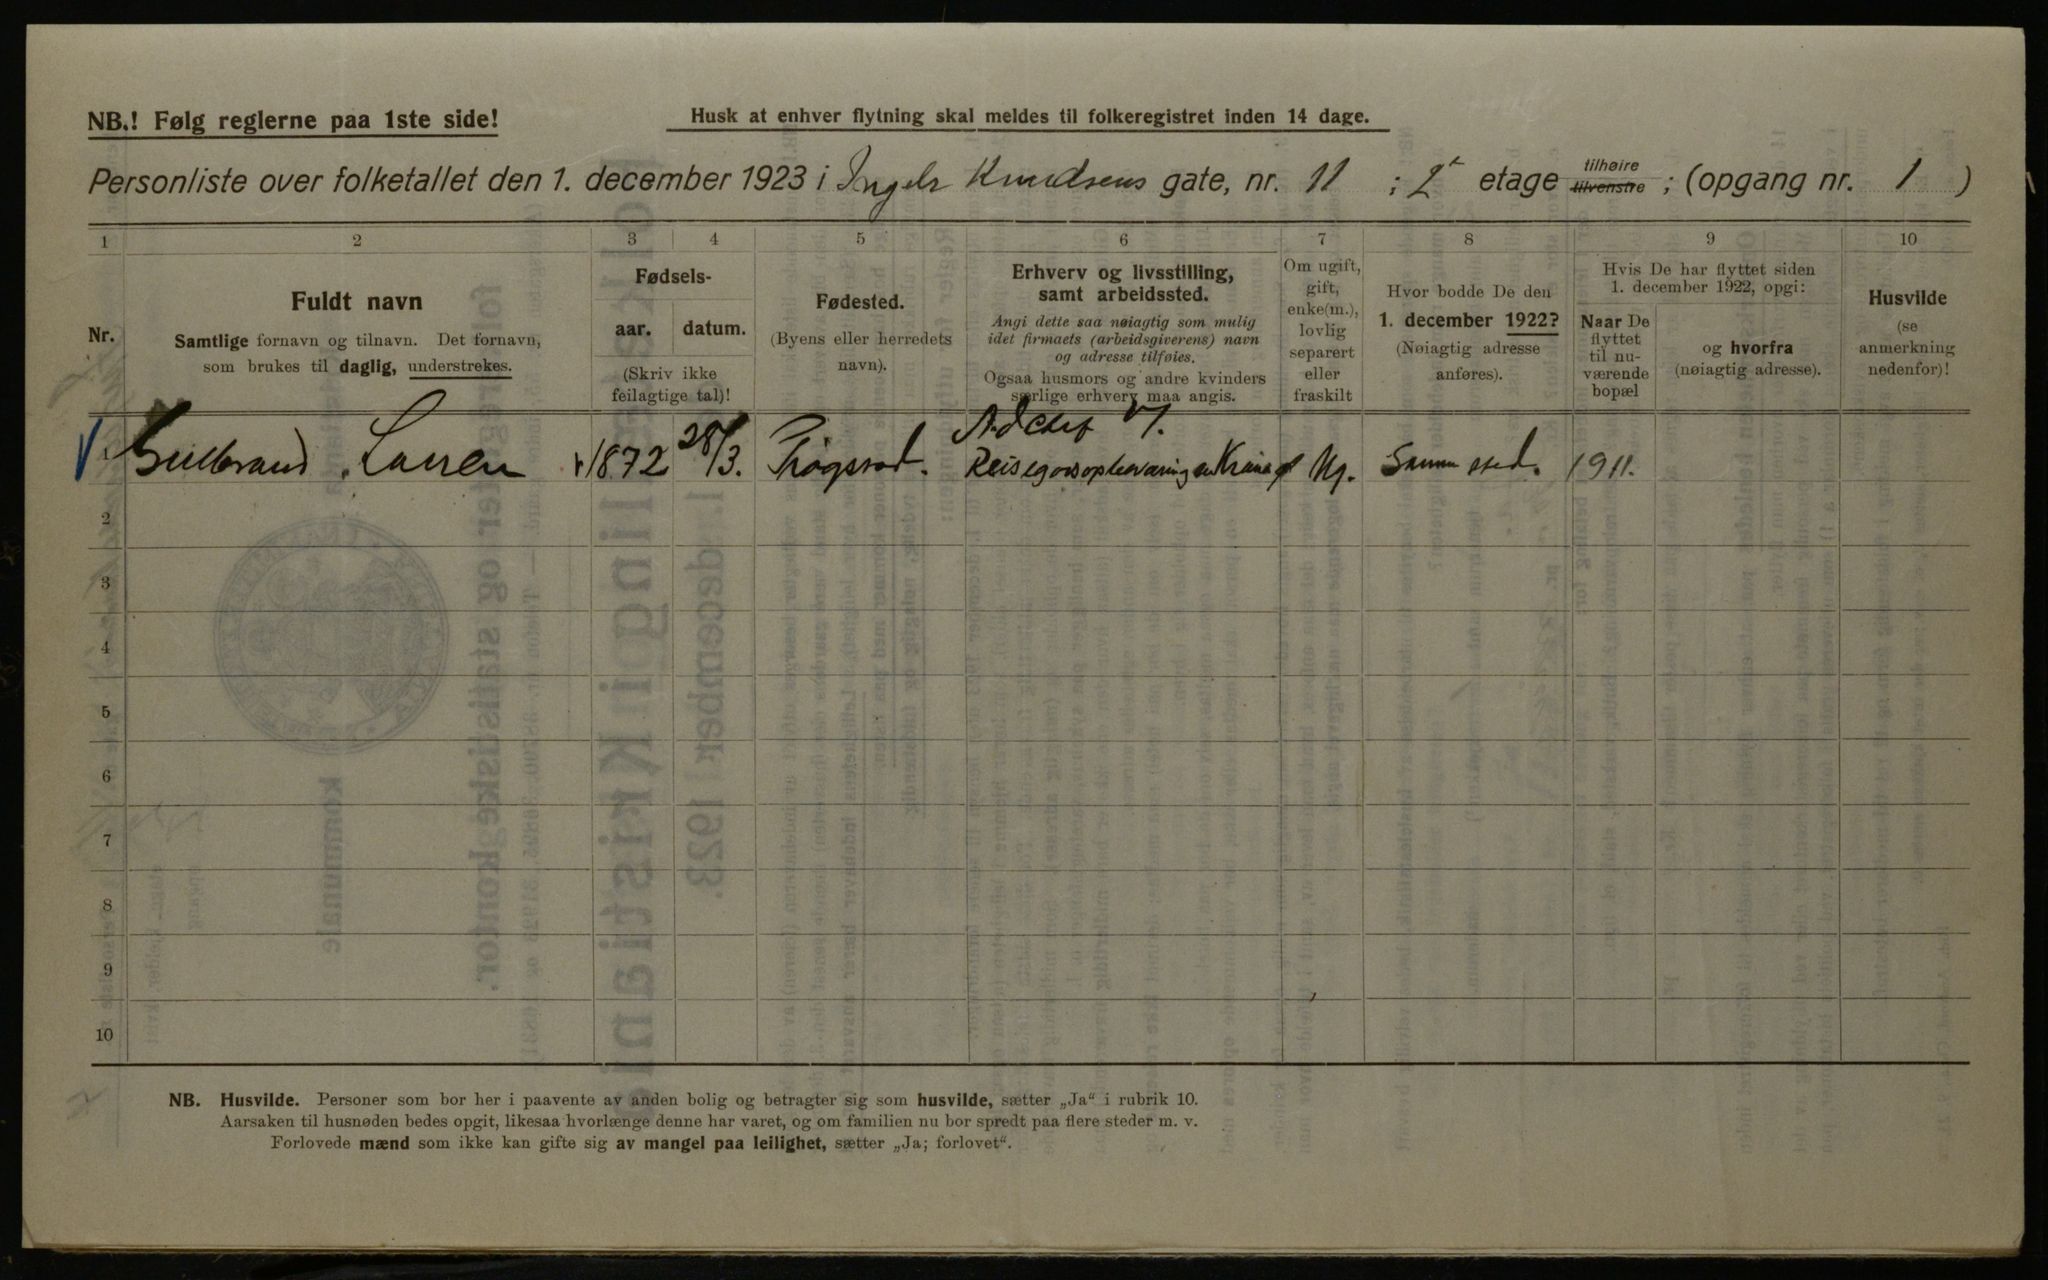 NB.! Følg reglerne paa 1ste side!
Husk at enhver flytning skal meldes til folkeregistret inden 14 dage.
Personliste over folketallet den 1. december 1923 i Ingelr Knudsens gate, nr. 11 ; 2 etage tilhøire tilvenstre ; (opgang nr. 1 )
1 2 3 4 5 6 7 8 9 10
Nr.
Fuldt navn
Samtlige fornavn og tilnavn. Det fornavn,
som brukes til daglig, understrekes.
Fødsels-
aar. datum.
(Skriv ikke
feilagtige tal)!
Fødested.
(Byens eller herredets
navn).
Erhverv og livsstilling,
samt arbeidssted.
Angi dette saa nøiagtig som mulig
idet firmaets (arbeidsgiverens) navn
og adresse tilføies.
Ogsaa husmors og andre kvinders
særlige erhverv maa angis.
Om ugift,
gift,
enke(m.),
lovlig
separert
eller
fraskilt
Hvor bodde De den
1. december 1922?
(Nøiagtig adresse
anføres).
Hvis De har flyttet siden
1. december 1922, opgi:
Naar De
flyttet
til nu-
værende
bopæl
og hvorfra
(nøiagtig adresse).
Husvilde
(se
anmerkning
nedenfor)!
Gulbrand Larsen 1872 28/3. Trøgstad. Reisegodsopbevaring Ug. Samme sted. 1911.
2
3
4
5
6
7
8
9
10
NB. Husvilde. Personer som bor her i paavente av anden bolig og betragter sig som husvilde, sætter „Ja“ i rubrik 10.
Aarsaken til husnøden bedes opgit, likesaa hvorlænge denne har varet, og om familien nu bor spredt paa flere steder m. v.
Forlovede mænd som ikke kan gifte sig av mangel paa leilighet, sætter „Ja; forlovet“.